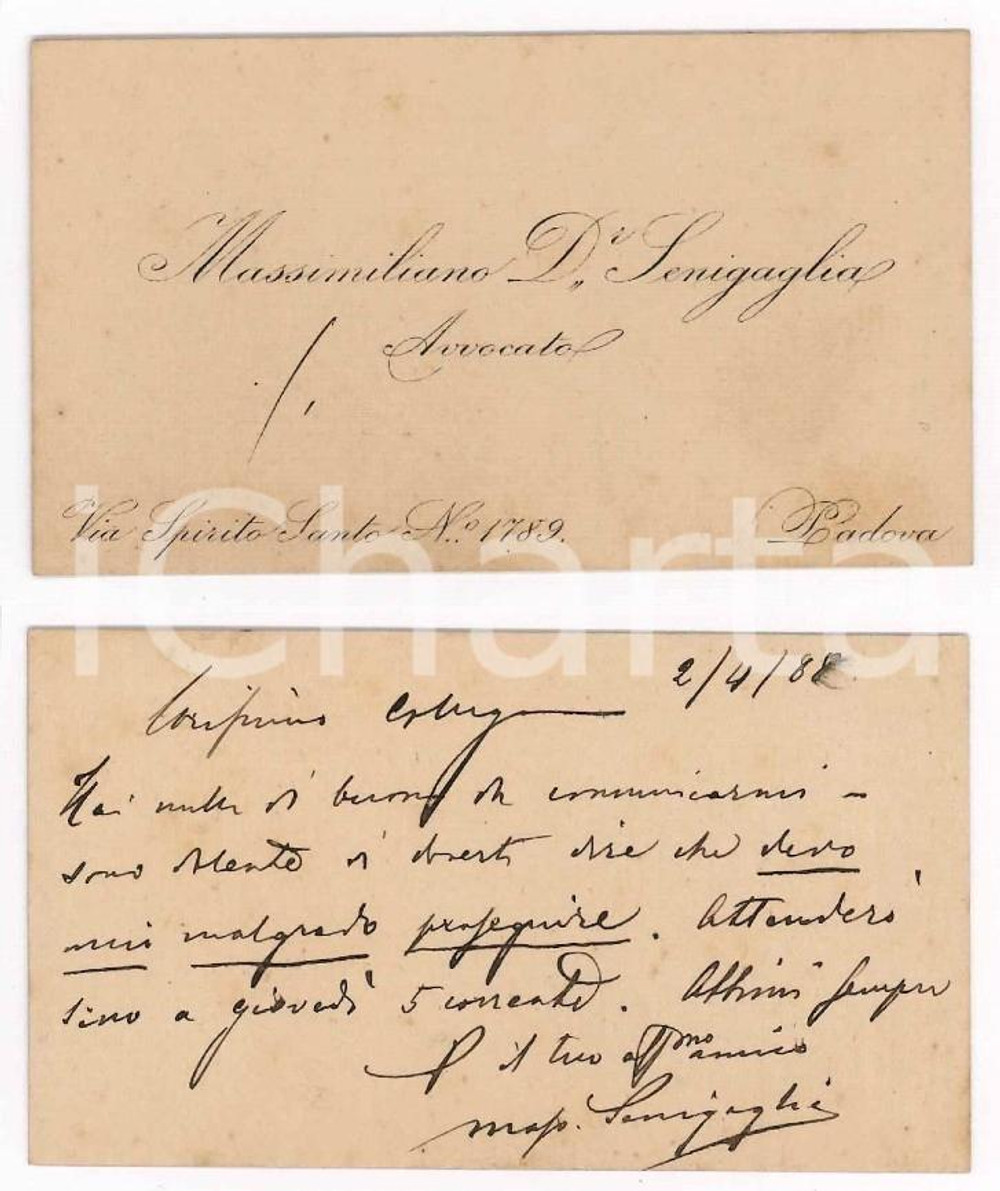 Massimiliano D.r Senigaglia
Avvocato
Via Spirito Santo N.o 1789.
Padova
iCharta
2/4/88
Carissimo Collega
Hai nulla di buono da comunicarmi –
sono dolente di doverti dire che devo
mio malgrado proseguire. Attenderò
sino a giovedì 5 corrente. sempre
il tuo aff.mo amico
Mass. Senigaglia